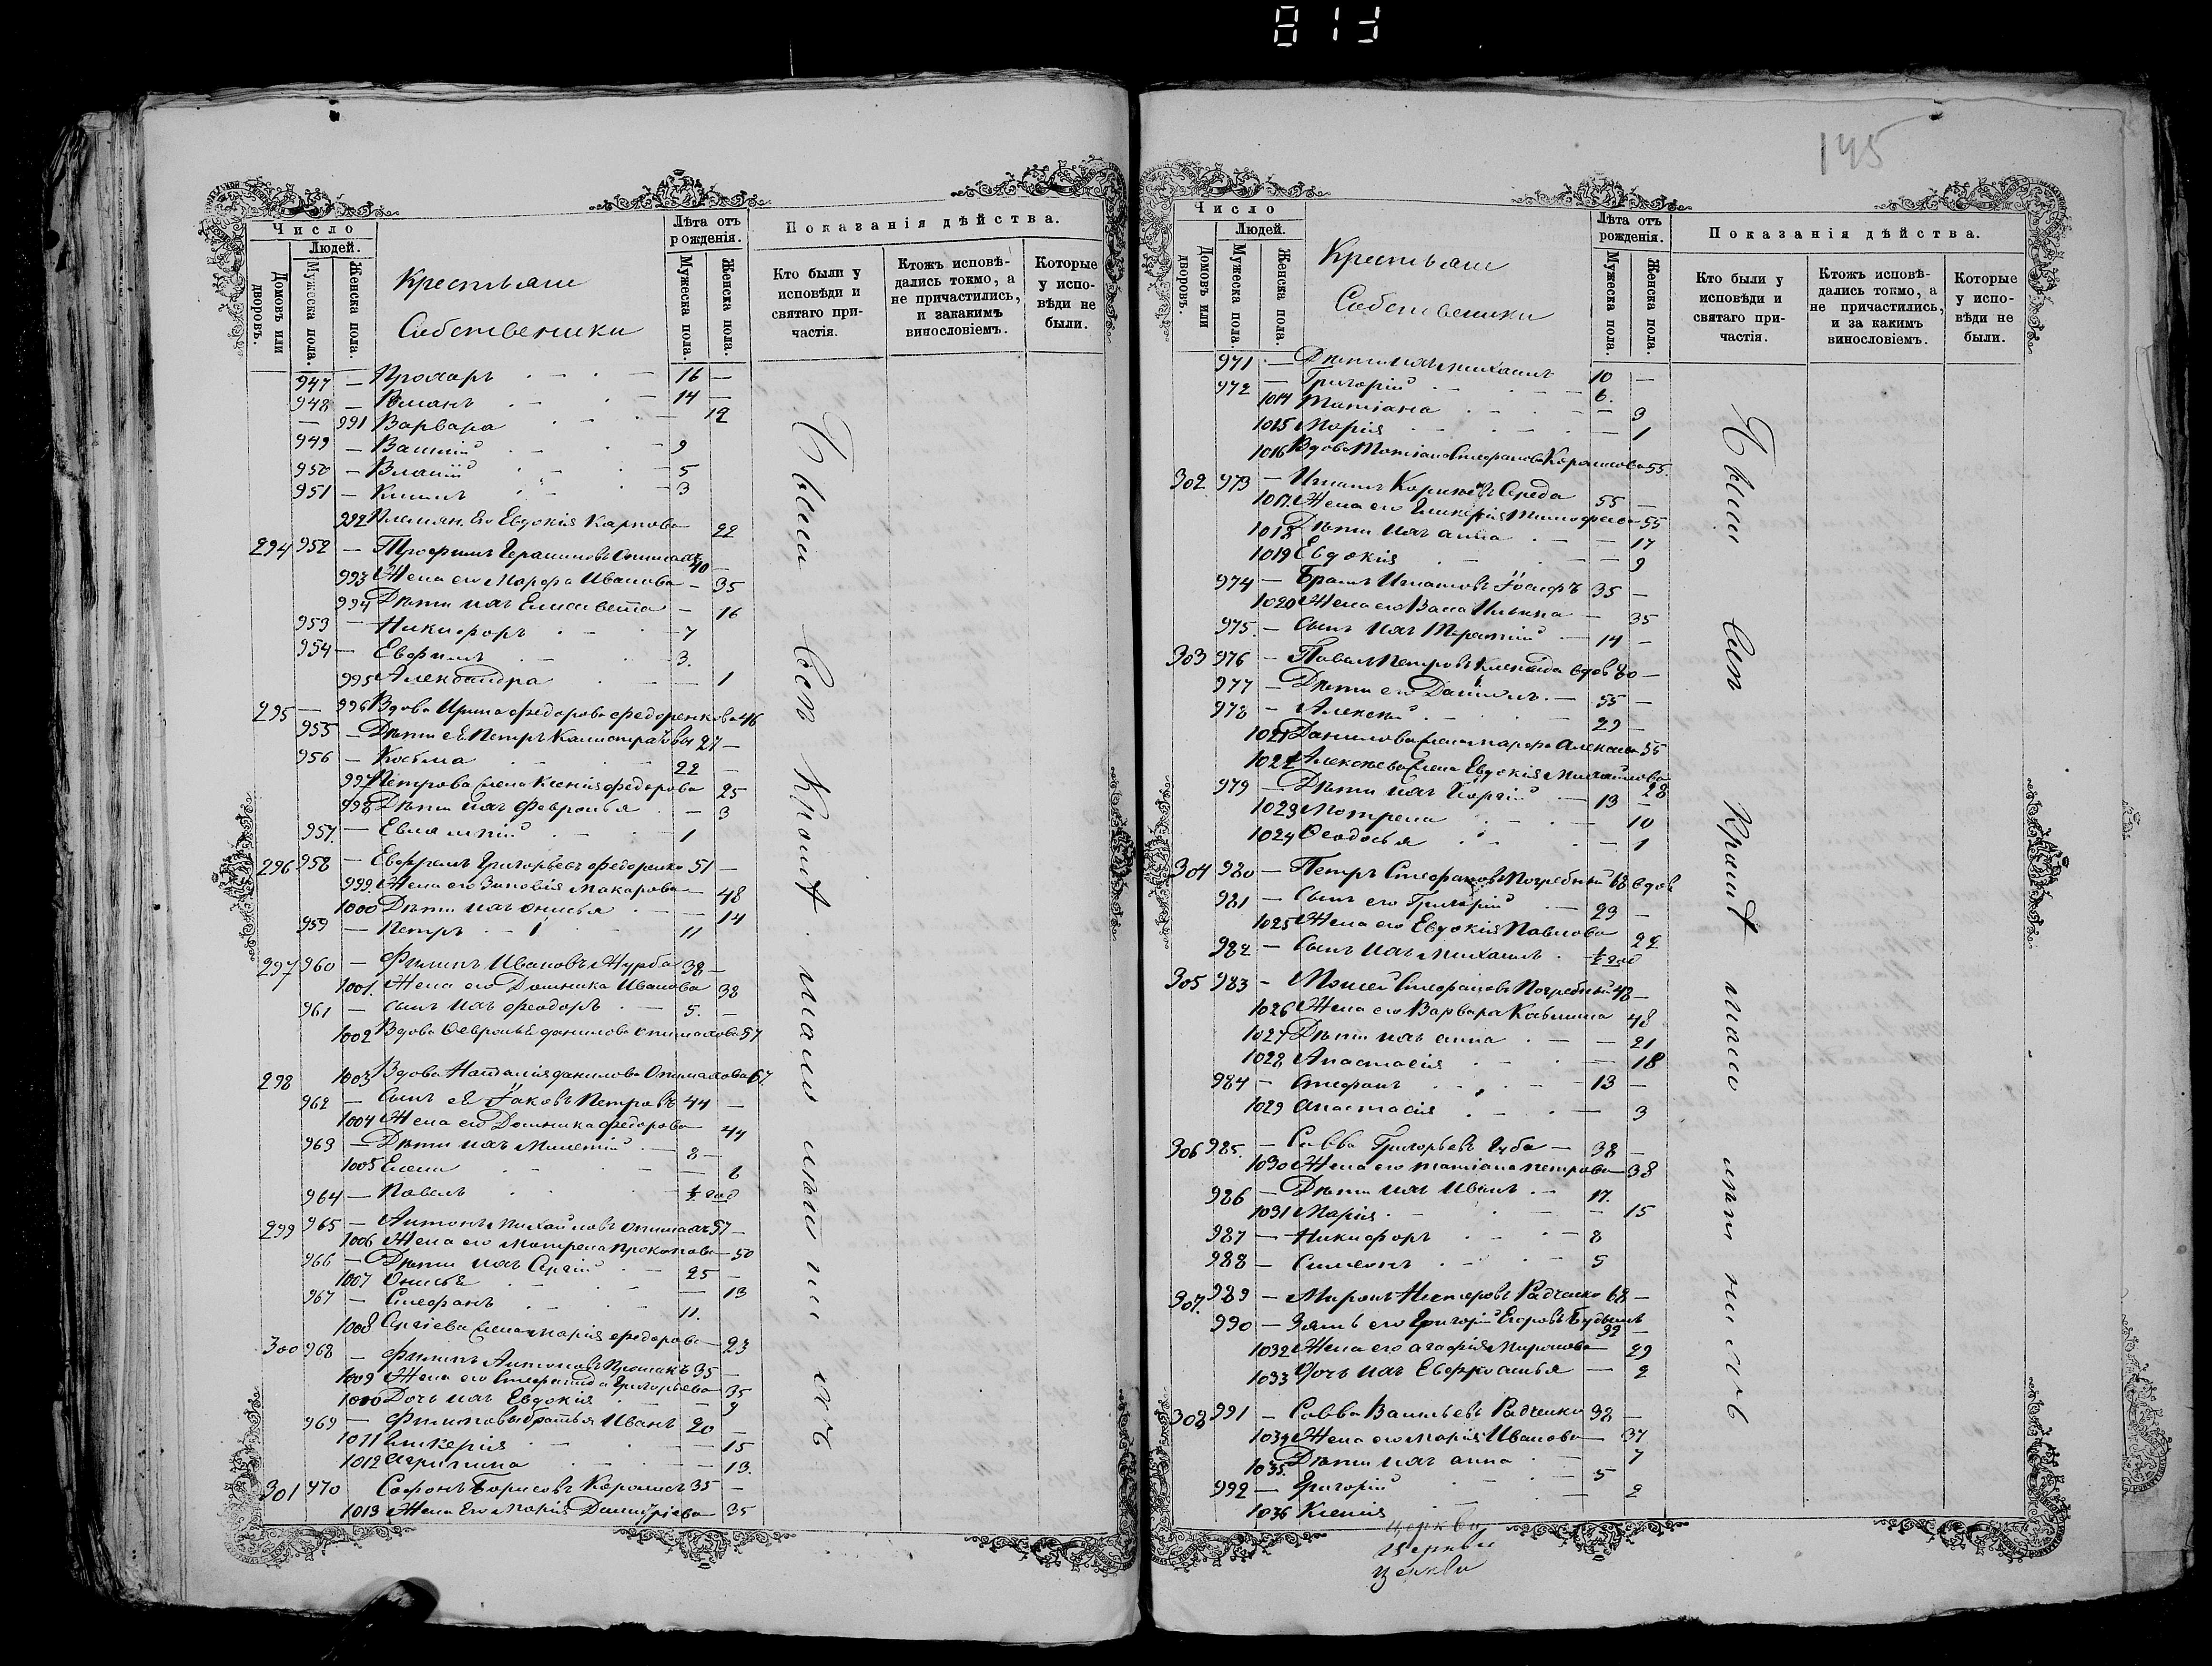 813
145
Число
Людей.
Домовъ или дворовъ.
Мужеска пола.
Женска пола.
Крестьяне
Собственики
Лѣта отъ рожденія.
Мужеска пола.
Женска пола.
Показанія дѣйства.
Кто были у исповѣди и святаго причастія.
Ктожъ исповѣдались токмо, а не причастились, и закакимъ винословіемъ.
Которые у исповѣди не были.
947 — Прохоръ — 16 —
948 — Романъ — 14 —
— 991 Варвара — 12
949 — Василій — 9
950 — Власій — 5
951 — Климъ — 3
992 Племян. Его Евдокія Карпова 22
294 952 — Трофимъ Герасимовъ Опимахъ 40 —
993 Жена его Марфа Иванова — 35
994 Дѣти ихъ Елисавета — 16
953 — Никифоръ — 7
954 — Евфимъ — 3.
995 Александра — 1
295 — 996 Вдова Ирина Федорова Федоренкова 46
955 — Дѣти еѣ Петръ Калистратовъ 27 —
956 — Косьма 22 —
997 Петрова жена Ксенія Федорова 25
998 Дѣти ихъ Февронья — 3
957. — Евлампій — 1
296 958 — Евфремъ Григорьевъ Федоренко 51 —
999. Жена его Зиновія Макарова — 48
1000 Дѣти ихъ Онисья — 14
959 — Петръ — 11
297 960 — Филипъ Ивановъ Журба 38 —
1001. Жена его Домника Иванова 38
961 — сынъ ихъ Феодоръ — 5. —
1002 Вдова Февронья Данилова Опимахова 57
298 1003 Вдова Наталія Данилова Опимахова 67
962 — Сынъ еѣ Іаковъ Петровъ 44 —
1004 Жена его Домника Федорова 44
963 — Дѣти ихъ Мелетій — 8 —
1005 Елена — 6
964 — Павелъ — ½ год
299 965 — Антонъ Михайловъ Опимахъ 57 —
1006 Жена его Матрена Прокопова — 50
966 — Дѣти ихъ Сергій — 25 —
1007 Онисья — 13
967 — Стефанъ — 11.
1008 Сергіева жена Марія Федорова — 23
300 968 — Филипъ Антоновъ Прошакъ 35 —
1009 Жена его Стефанида Григорьева 35
1010 Дочь ихъ Евдокія — 9
969 — Филиповы братья Иванъ 20 —
1011 Гликерія — 15
1012 Агрипина — 13.
301 970 Софонъ Борисовъ Коромысъ 35 —
1013 Жена Его Марія Димитріева 35
Число
Людей.
Домовъ или дворовъ.
Мужеска пола.
Женска пола.
Крестьяне
Собственики
Лѣта отъ рожденія.
Мужеска пола.
Женска пола.
Показанія дѣйства.
Кто были у исповѣди и святаго причастія.
Ктожъ исповѣдались токмо, а не причастились, и за какимъ винословіемъ.
Которые у исповѣди не были.
971 — Дѣти ихъ Михаилъ 10 —
972 — Григорій — 6.
1014 Татіана — 9
1015 Марія — 1
1016 Вдова Татіана Стефанова 55.
302 973 — Игнатъ Корнѣевъ Середа 55 —
1017 Жена его Гликерія Тимофеева 55
1018 Дѣти ихъ Анна — 17
1019 Евдокія — 9
974 — Братъ Игнатовъ Іосифъ 35 —
1020 Жена его Васа Ильина — 35
975. — Сынъ ихъ Терентій — 14 —
303 976 — Павелъ Петровъ вдов 80 —
977 — Дѣти его Даниилъ. — 55 —
978 — Алексѣй — 29 —
1021 Данилова жена Марфа Алексеева 55
1022 Алексѣева жена Евдокія Михайлова 28
979 — Дѣти ихъ Георгій — 13 —
1023 Мотрена — 10
1024 Феодосья — 1
304 980 — Петръ Стефановъ Погребный 68 вдов
981 — Сынъ его Григорій — 23 —
1025 Жена его Евдокія Павлова 22
982 — Сынъ ихъ Михаилъ ½ год
305 983 — Моисей Стефановъ Погребный 48 —
1026 Жена его Варвара Косьмина 48
1027 Дѣти ихъ Анна — 21
1028 Анастасія — 18
984 — Стефанъ — 13 —
1029 Анастасія — 3
306 985. — Савва Григорьевъ Губа — 38 —
1030 Жена его Татіана Петрова — 38
986 — Дѣти ихъ Иванъ — 17.
1031 Марія — 15
987 — Никифоръ — 8
988 — Симеонъ — 5
307. 989 — Миронъ Несторовъ Радченко 68 —
990 — Зять его Григорій Егоровъ 32 —
1032 Жена его Агафія Миронова — 29
1033 Дочь ихъ Евфросинья — 2
308 991 — Савва Васильевъ Радченко 38 —
1034 Жена его Марія Иванова — 37
1035. Дѣти ихъ Анна — 7
992 — Григорій — 5
1036 Ксенія — 2
церкви
церкви
церкви